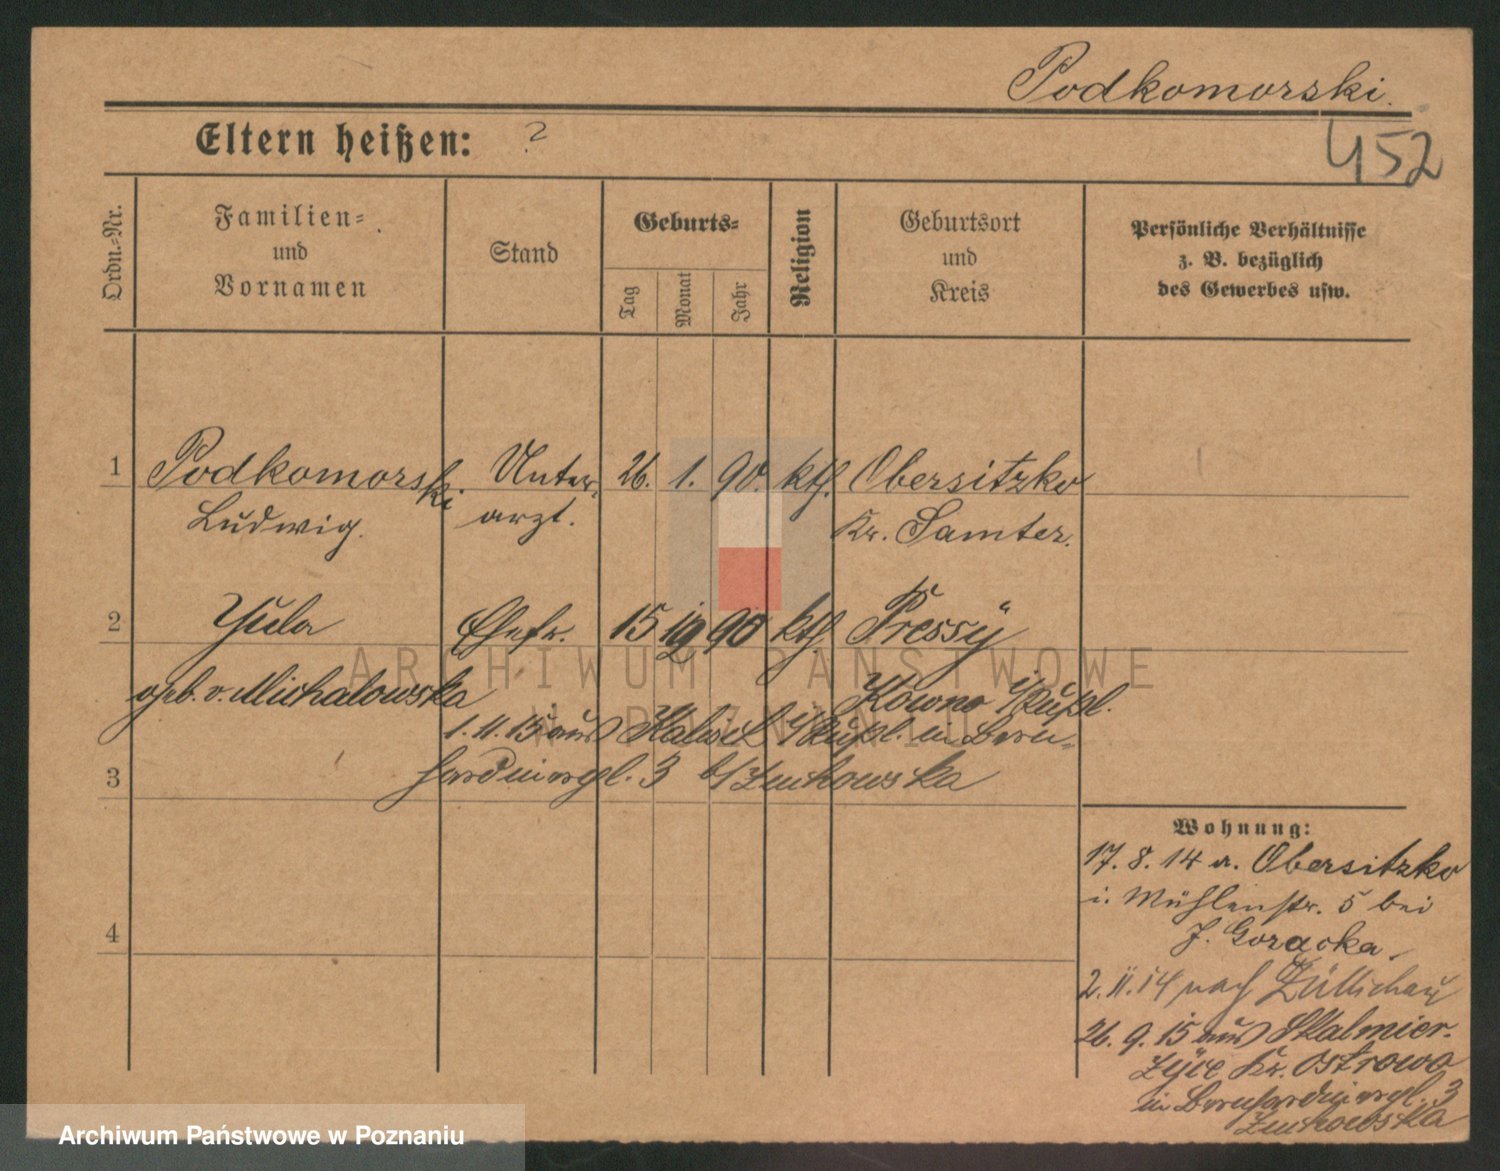 Podkomorski.
452
Eltern heißen: ?
Ordn.=Nr.
Familien=
und
Vornamen
Stand
Geburts=
Tag
Monat
Jahr
Religion
Geburtsort
und
Kreis
Persönliche Verhältnisse
z. B. bezüglich
des Gewerbes usw.
1 Podkomorski Unter- 26. 1. 90. kth. Obersitzko
Ludwig. arzt. Kr. Samter.
2 Yula Ehefr. 15 90 kth Pressÿ
geb. v. Michalowska Kowno i/Rußl.
1. 11. 15 aus Kalisch i/Rußl. in Bern-
3 hardinergl. 3 b/Zuchowska
4
Wohnung:
17. 8. 14 a. Obersitzko
i. Mühlenstr. 5 bei
J. Goracka.
2. 11. 14 nach Züllichau
26. 9. 15 aus Skalmier-
zÿce Kr. Ostrowo
in Bernhardinergl. 3
Zuchowska
ARCHIWUM PAŃSTWOWE
W POZNANIU
Archiwum Państwowe w Poznaniu